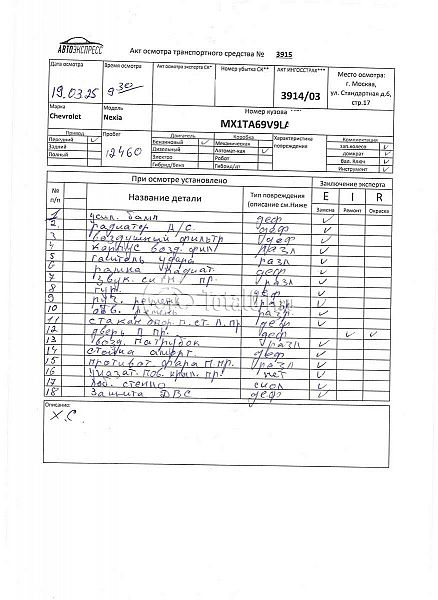 АВТОЭКСПРЕСС
Акт осмотра транспортного средства № 3915
Дата осмотра
19.03.25
Время осмотра
9 30
Акт осмотра эксперта СК*
Номер убытка СК**
АКТ ИНГОССТРАХ***
3914/03
Место осмотра:
г. Москва,
ул. Стандартная д.6,
стр.17
Марка
Chevrolet
Модель
Nexia
Номер кузова
MX1TA69V9LA
Привод
Передний ✓
Задний
Полный
Пробег
12460
Двигатель
Бензиновый ✓
Дизельный
Электро
Гибрид/Бенз
Коробка
Механическая
Автомат-кая ✓
Робот
Гибрид/эл.
Характеристика повреждения
Комплектация
зап.колесо ✓
домкрат ✓
Бал. Ключ ✓
Инструмент ✓
№ п/п
При осмотре установлено
Название детали
Тип повреждения
(описание см.Ниже
Заключение эксперта
E I R
Замена Ремонт Окраска
1 усил. бамп деф ✓
2. радиатор А/С. деф ✓
3 воздушный фильтр деф ✓
4 корпус возд. фил разл ✓
5 гаситель удара разл ✓
6 рамка радиат. деф ✓
7 звук. сигн пр. разл ✓
8 деф ✓
9 деф ✓
10 разр. ✓
11 стакан п. ст. п. пр деф ✓
12 дверь п пр. деф ✓ ✓
13 возд. патрубок разл ✓
14 стойка аморт. деф ✓
15 противот фара п.пр. разл ✓
16 указат. пов. крыл. пр. нет ✓
17 лоб. стекло скол ✓
18 защита ДВС деф ✓
Total
Описание:
Х.С.